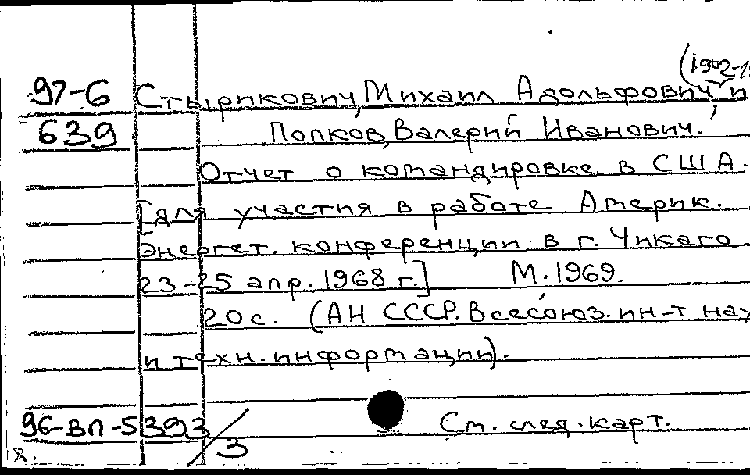 (1902-1
97-6 Стырикович, Михаил Адольфович и
639 Попков, Валерий Иванович.
Отчет о командировке в США.
[для участия в работе Америк.
энергет. конференции в г. Чикаго
23-25 апр. 1968 г.] М. 1969.
20 с. (АН СССР. Всесоюз. ин-т нау
и техн. информации).
96-ВП-5393/3 См. след. карт.